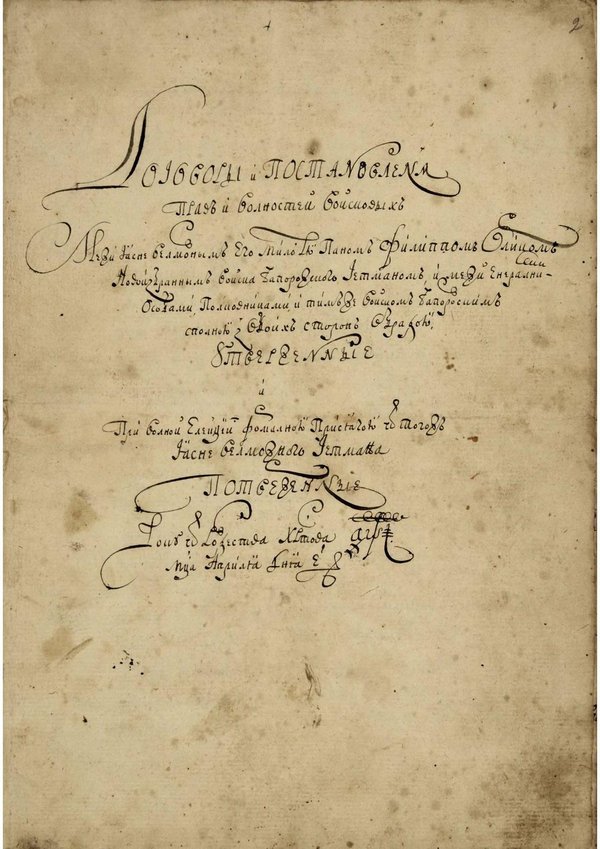 2
Договоры и Постановленѧ
Правъ и волностей войсковыхъ
Межи Ясне велможнымъ Его милостю паномъ Филиппомъ Орликомъ
Новоизбраннымъ войска Запорожского Гетманомъ, и межи Енералними
Особами, Полковниками, и тимъ же войскомъ Запорожскимъ
сполною з обоихъ сторонъ обрадою,
Утверженные
и
При волной Елекцией формалною присягою ѿ тогожъ
Ясне велможного Гетмана
Потверженные
Року ѿ Рожества Христова аѱі
мца Априлѧ дня е҃